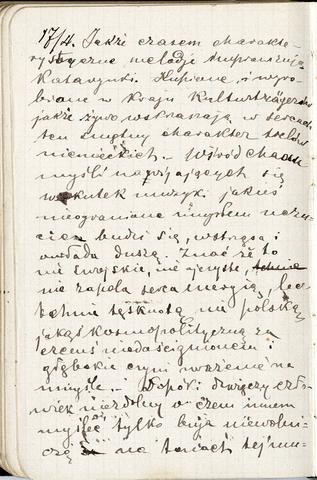 17/4. Jakże czasem charakte-
rystyczne melodje
Katarynki. Kupione, i wyro-
bione w kraju Kulturträgerów
jakże żywo wskrzeszają w sercach
ten smętny charakter
niemieckich. – Wśród chaosu
myśli nasuwających się
wskutek muzyki jakieś
nieograniczone umysłem uczu-
cie budzi się, wstrząsa i
owłada duszą. Znać że to
nie swojskie, nie ojczyste,
nie zapala serca energią, lecz
tchnie tęsknotą nie polską,
jakąś kosmopolityczną za
czemuś niedoścignionem i
głębokie czyni wrażenie na
umyśle. – Dopóki dźwięczy czło-
wiek niezdolny o czem innem
myśleć tylko buja niewolni-
czo na tonach tej mu-